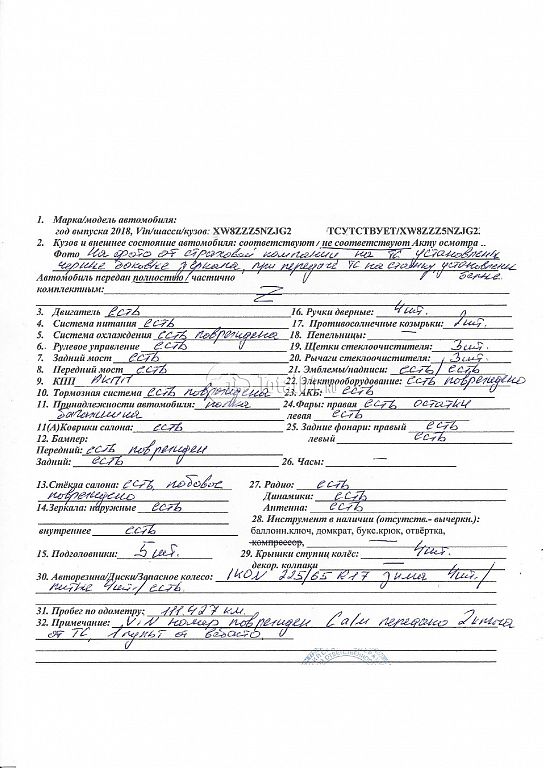 1. Марка/модель автомобиля:
год выпуска 2018, Vin/шасси/кузов: XW8ZZZ5NZJG2 ТСУТСТВУЕТ/XW8ZZZ5NZJG2.
2. Кузов и внешнее состояние автомобиля: соответствуют / не соответствуют Акту осмотра ..
Фото На фото от страховой компании на ТС установлены
черные боковые зеркала, при передаче ТС на стоянку установлены
белые
Автомобиль передан полностью / частично
комплектным: Z
3. Двигатель есть 16. Ручки дверные: 4 шт.
4. Система питания есть 17. Противосолнечные козырьки: 2 шт.
5. Система охлаждения есть повреждена 18. Пепельницы: —
6. Рулевое управление есть 19. Щетки стеклоочистителя: 3 шт.
7. Задний мост есть 20. Рычаги стеклоочистителя: 3 шт.
8. Передний мост есть 21. Эмблемы/надписи: есть/ есть
9. КПП АКПП 22. Электрооборудование: есть повреждено
10. Тормозная система есть повреждена 23. АКБ: есть
11. Принадлежности автомобиля: полка 24.Фары: правая есть остатки
багажника левая есть
11(А)Коврики салона: есть 25. Задние фонари: правый есть
12. Бампер: левый есть
Передний: есть поврежден
Задний: есть 26. Часы: —
13.Стёкла салона: есть, лобовое 27. Радио: есть
повреждено Динамики: есть
14.Зеркала: наружные есть Антенна: есть
28. Инструмент в наличии (отсутств.- вычеркн.):
внутреннее есть баллонн.ключ, домкрат, букс.крюк, отвёртка,
компрессор,
15. Подголовники: 5 шт. 29. Крышки ступиц колёс: 4 шт.
декор. колпаки —
30. Авторезина/Диски/Запасное колесо: IKON 225/65 R17 зима 4шт/
литые 4шт/ есть.
31. Пробег по одометру: 111.427 км.
32. Примечание: ViN номер поврежден С а/м передано 2 ключа
от ТС, 1 пульт от